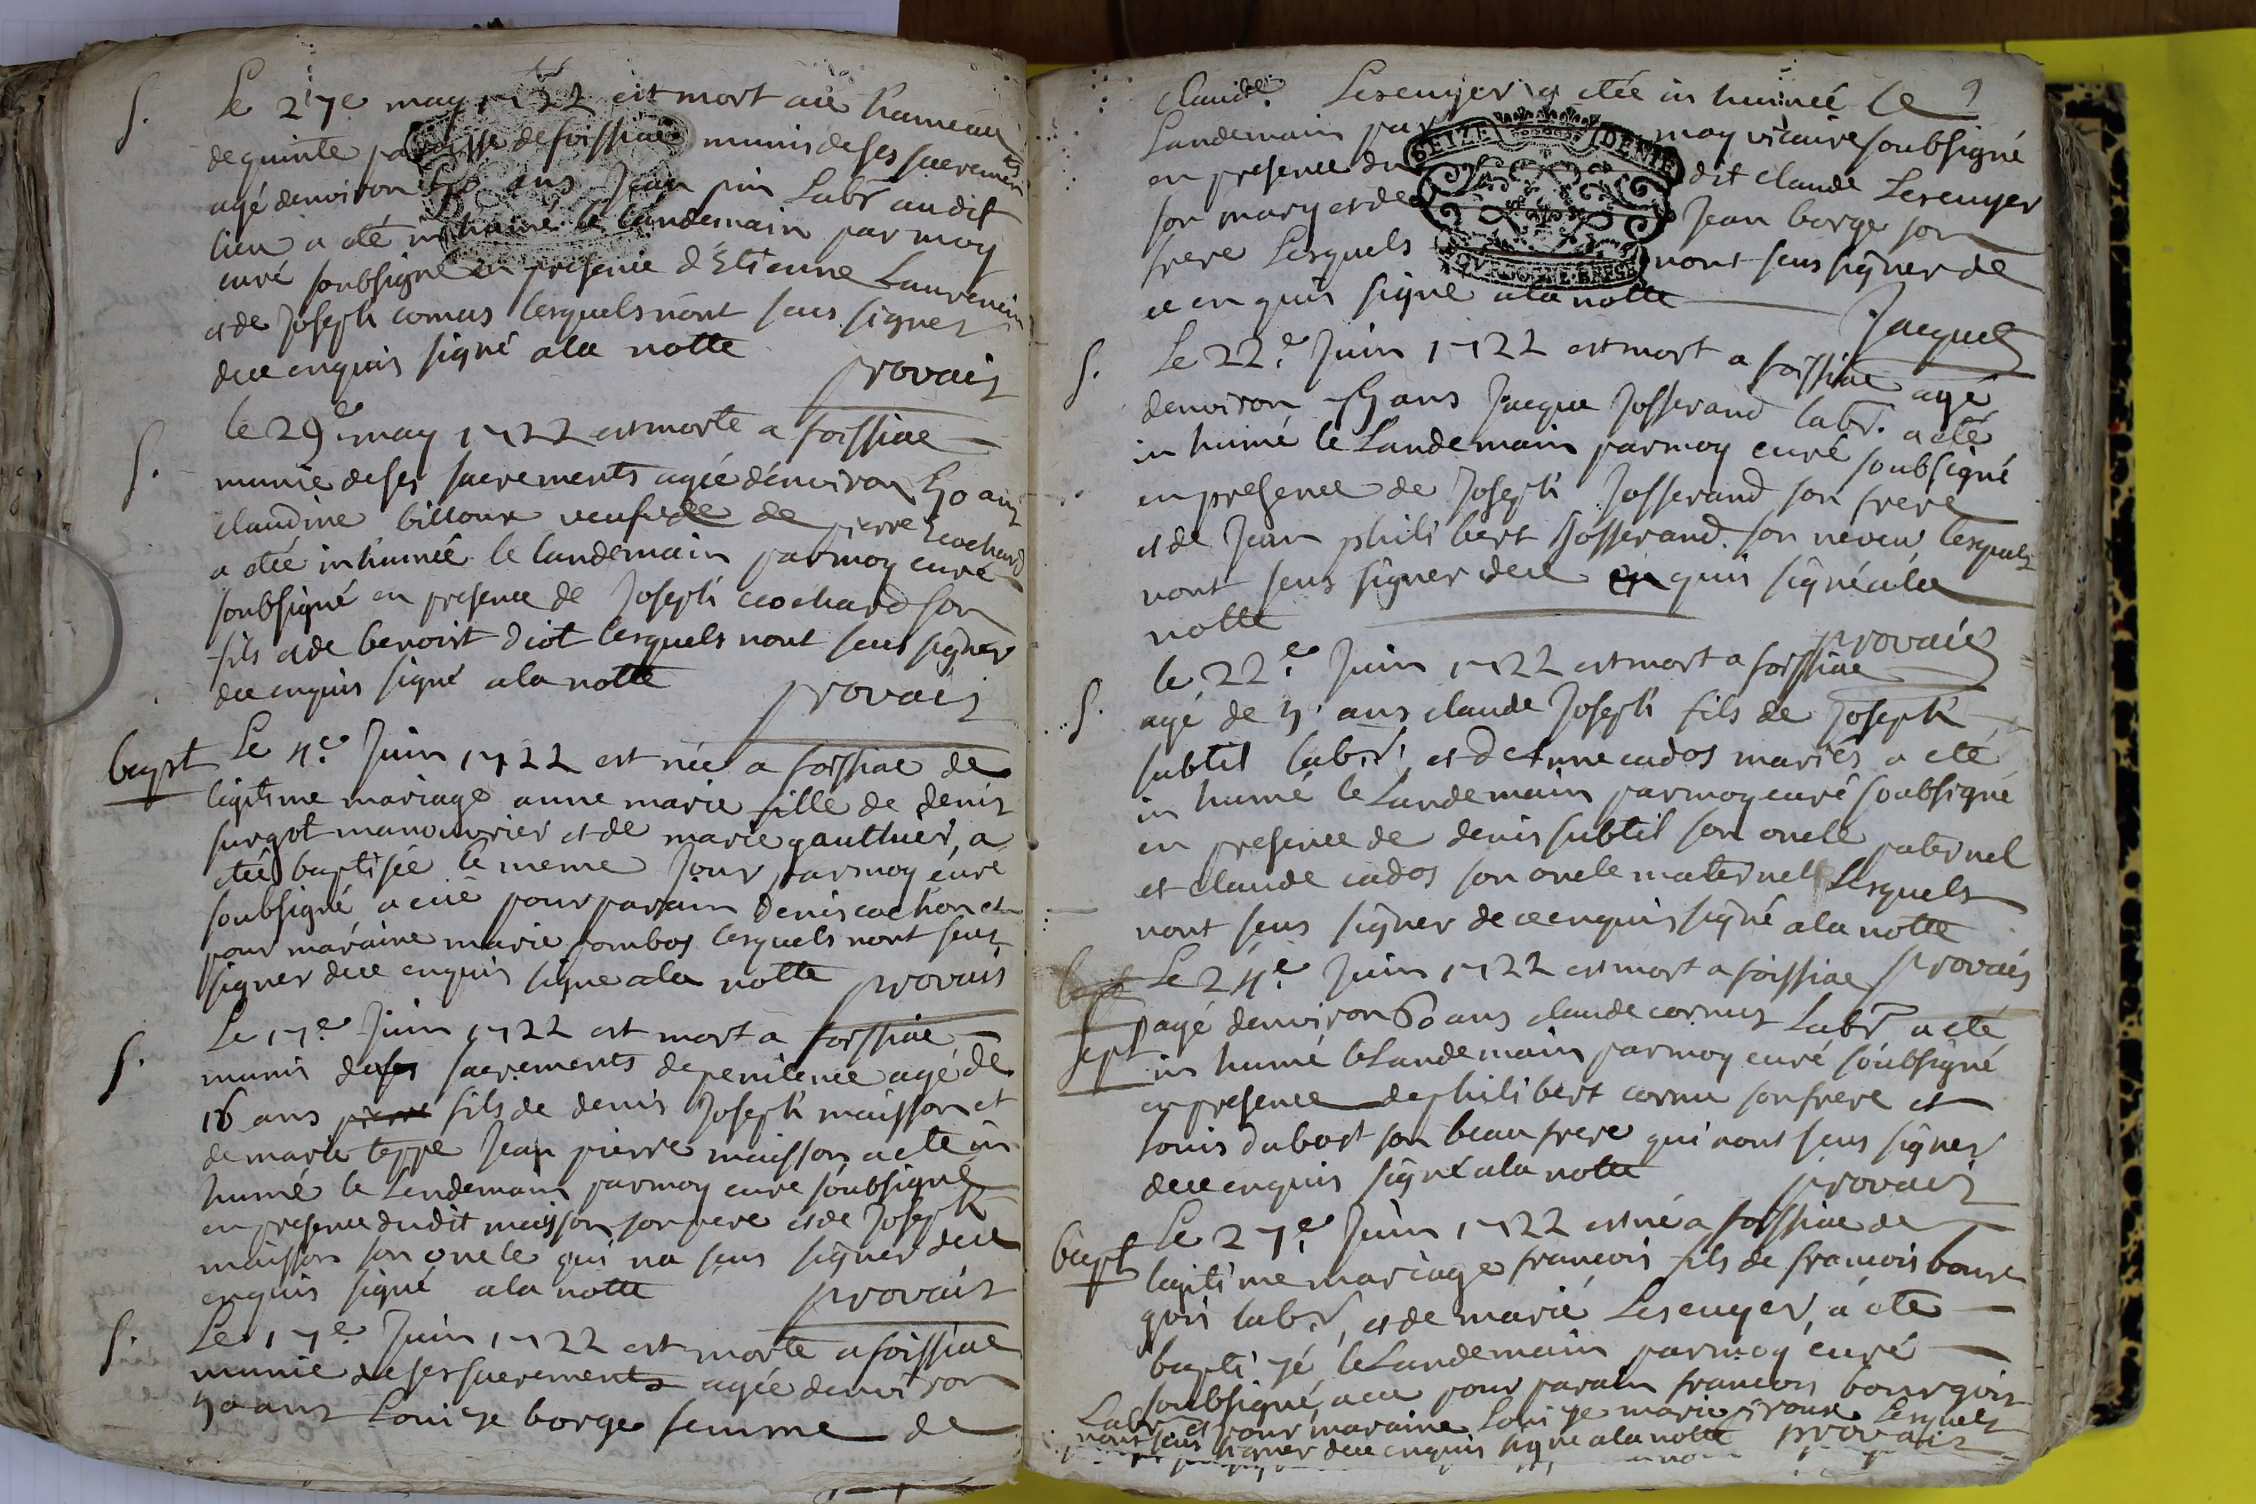 S.
Le 27e may 1722 est mort au hameau
de quinte paroisse de foissiae munis de ses sacrements
agé denviron 50 ans Jean pin Labr audit
lieu a eté in humé le landemain par moy
curé soubsigné en presence d'Etienne Laurencin
et de Joseph cornus lesquels nont seus signer
dece enquis signé ala notte
provais
S.
le 29e may 1722 est morte a foissiae
munie de ses sacrements agée denviron 50 ans
claudine billoux veufve de de pierre cochard
a etée inhumée le landemain par moy curé
soubsigné en presence de Joseph cochard son
fils et de benoist diot lesquels nont seus signer
dece enquis signé ala notte
provais
bapt
Le 4e Juin 1722 est née a foissiae de
légitime mariage anne marie fille de denis
surgot manouvrier et de marie gauthier, a
etée baptisée le meme Jour par moy curé
soubsigné a eüe pour parain Denis cochon et
pour maraine marie lesquels nont seus
signer dece enquis signe ala notte
provais
S.
Le 17e Juin 1722 est mort a foissiae
munis de ses sacrements de penitence agé de
16 ans fils de denis Joseph maisson et
de marie teppe Jean pierre maisson a eté in
humé le Lendemain par moy curé soubsigné
en presence dudit maisson son pere et de Joseph
maisson son oncle qui na seus signer dece
enquis signé ala notte
provais
S.
Le 17e Juin 1722 est morte a foissiae
munie de ses sacrements agée denviron
50 ans Louise borge femme de
9
claude Lescuyer a etée in humée le
Landemain par moy vicaire soubsigné
en presence du dit claude Lescuyer
son mary et de Jean borge son
frere Lesquels nont seus signer de
ce enquis signe ala notte
Jacquet
S.
Le 22e Juin 1722 est mort a foissiae agé
denviron ans Jacque Josserand labr. a eté
in humé le Landemain par moy curé soubsigné
en presence de Joseph Josserand son frere
et de Jean philibert Josserand son neveu lesquels
nont seus signer dece en quis signé ala
notte
provais
S.
le 22e Juin 1722 est mort a foissiae
agé de 5 ans claude Joseph fils de Joseph
subtil labr. et d'Anne cados mariés a eté
in humé le Landemain par moy curé soubsigné
en presence de denis subtil son oncle paternel
et claude cados son oncle maternel Lesquels
nont seus signer de ce enquis signé ala notte
provais
bapt
sept
Le 24e Juin 1722 est mort a foissiae
agé denviron 60 ans claude cornus Labr a eté
in humé le Landemain par moy curé soubsigné
en presence de philibert cornu son frere et
Louis dubost son beau frere qui nont seus signer
dece enquis signé ala notte
provais
bapt
Le 27e Juin 1722 est né a foissiae de
legitime mariage francois fils de francois bour
gois labr, et de marie Lescuyer, a ete
baptizé le Landemain par moy curé
soubsigné, a eu pour parain francois bourgois
Labr et pour maraine Louize marie Lesquels
nont seus signer dece enquis signe ala notte provais